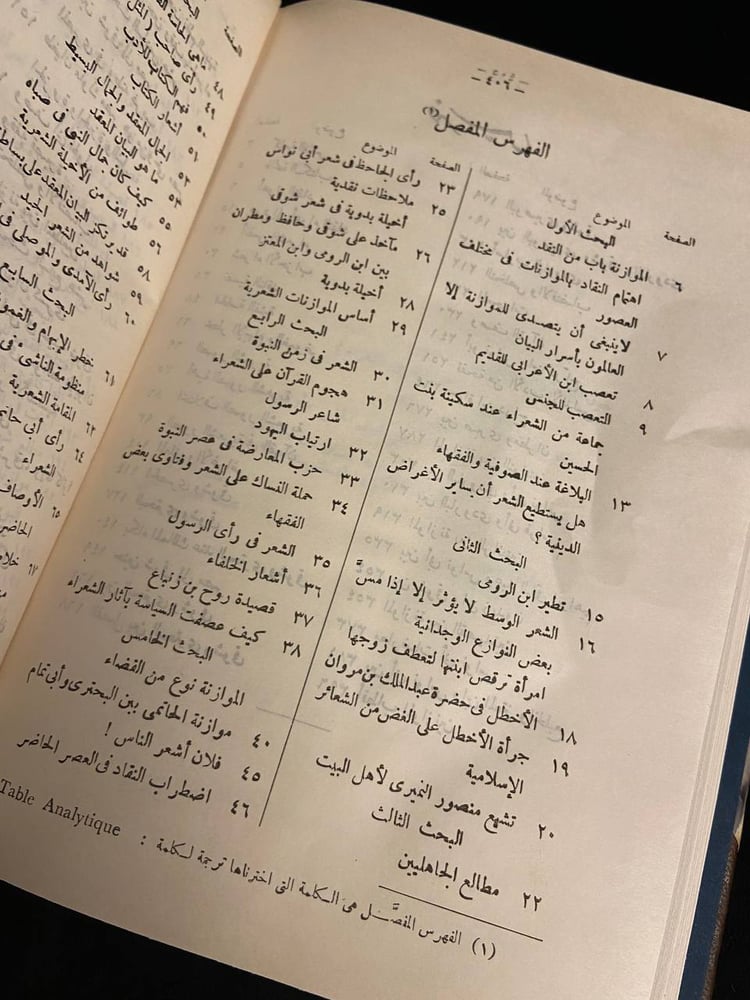 — ٤٠٦ —
الفهرس المفصل (١)
الصفحة الموضوع
البحث الأول
٦ الموازنة باب من النقد
اهتمام النقاد بالموازنات فى مختلف
العصور
٧ لا ينبغى أن يتصدى للموازنة إلا
العالمون بأسرار البيان
٨ تعصب ابن الأعرابى للقديم
٩ التعصب للجنس
جماعة من الشعراء عند سكينة بنت
الحسين
١٣ البلاغة عند الصوفية والفقهاء
هل يستطيع الشعر أن يساير الأغراض
الدينية ؟
البحث الثانى
١٥ تطير ابن الرومى
١٦ الشعر الوسط لا يؤثر إلا إذا مسَّ
بعض النوازع الوجدانية
امرأة ترقص ابنتها لتعطف زوجها
١٨ الأخطل فى حضرة عبد الملك بن مروان
١٩ جرأة الأخطل على الغض من الشعائر
الإسلامية
٢٠ تشيع منصور النميرى لأهل البيت
البحث الثالث
٢٢ مطالع الجاهليين
الصفحة الموضوع
٢٣ رأى الجاحظ فى شعر أبى نواس
٢٥ ملاحظات نقدية
أخيلة بدوية فى شعر شوقى
٢٦ مآخذ على شوقى وحافظ ومطران
بين ابن الرومى وابن المعتز
٢٨ أخيلة بدوية
٢٩ أساس الموازنات الشعرية
البحث الرابع
٣٠ الشعر فى زمن النبوة
٣١ هجوم القرآن على الشعراء
شاعر الرسول
٣٢ ارتياب اليهود
٣٣ حزب المعارضة فى عصر النبوة
٣٤ حملة النساك على الشعر وفتاوى بعض
الفقهاء
٣٥ الشعر فى رأى الرسول
٣٦ أشعار الخلفاء
٣٧ قصيدة روح بن زنباع
٣٨ كيف عصفت السياسة بآثار الشعراء
البحث الخامس
الموازنة نوع من القضاء
٤٠ موازنة الحاتمى بين البحترى وأبى تمام
٤٥ فلان أشعر الناس !
٤٦ اضطراب النقاد فى العصر الحاضر
(١) الفهرس المفصَّل هى الكلمة التى اخترناها ترجمة لكلمة : Table Analytique
الصفحة
٤٨
رأى صاحب (المثل
٤٩ فهم الكتاب للأدب
٥٠ أشعار الكتاب
٥١ الجمال المعقد والجمال البسيط
٥٢ ما هو البيان المعقد
٥٣ كيف كان جمال النبى فى صباه
٥٥ طوائف من الأخيلة الشعرية
٥٦ قد يرتكز البيان المعقد على
٥٨ شواهد من الشعر الجيد
٥٩ رأى الآمدى والموصلى فى
٦٠
البحث السابع
٦١ خطر الإبهام
منظومة الناشئ فى
٦٢ المقامة الشعرية
٦٤ رأى أبى
الشعراء
٦٥ الأوصاف
٦٢